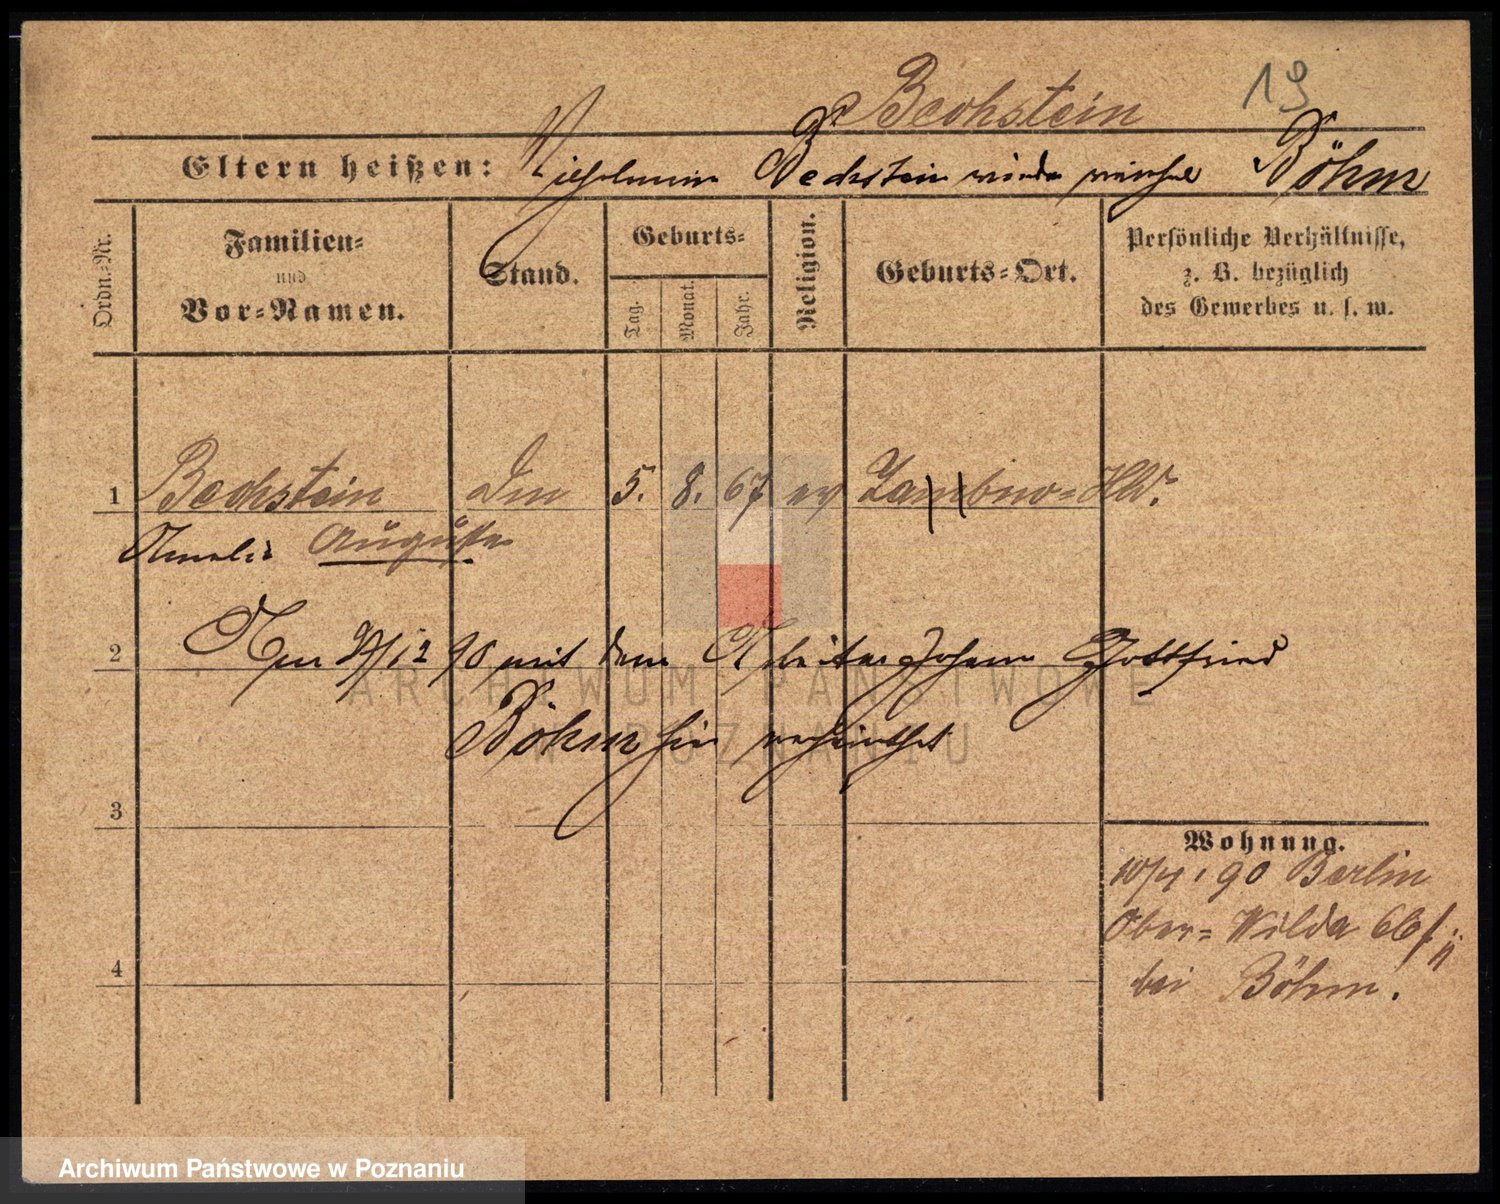 Bechstein 19
Eltern heißen: Bechstein Böhm
Ordn.-Nr.
Familien-
und
Vor-Namen.
Stand.
Geburts-
Tag.
Monat.
Jahr.
Religion.
Geburts-Ort.
Persönliche Verhältnisse,
z. B. bezüglich
des Gewerbes u. s. w.
1 Bechstein 5. 8. 67 ev
Amalie Auguste
2 mit dem Arbeiter Johann Gottfried
Böhm hier verheirathet
3
Wohnung.
90 Berlin
Ober-Wilda 66
4
bei Böhm.
ARCHIWUM PAŃSTWOWE
W POZNANIU
Archiwum Państwowe w Poznaniu